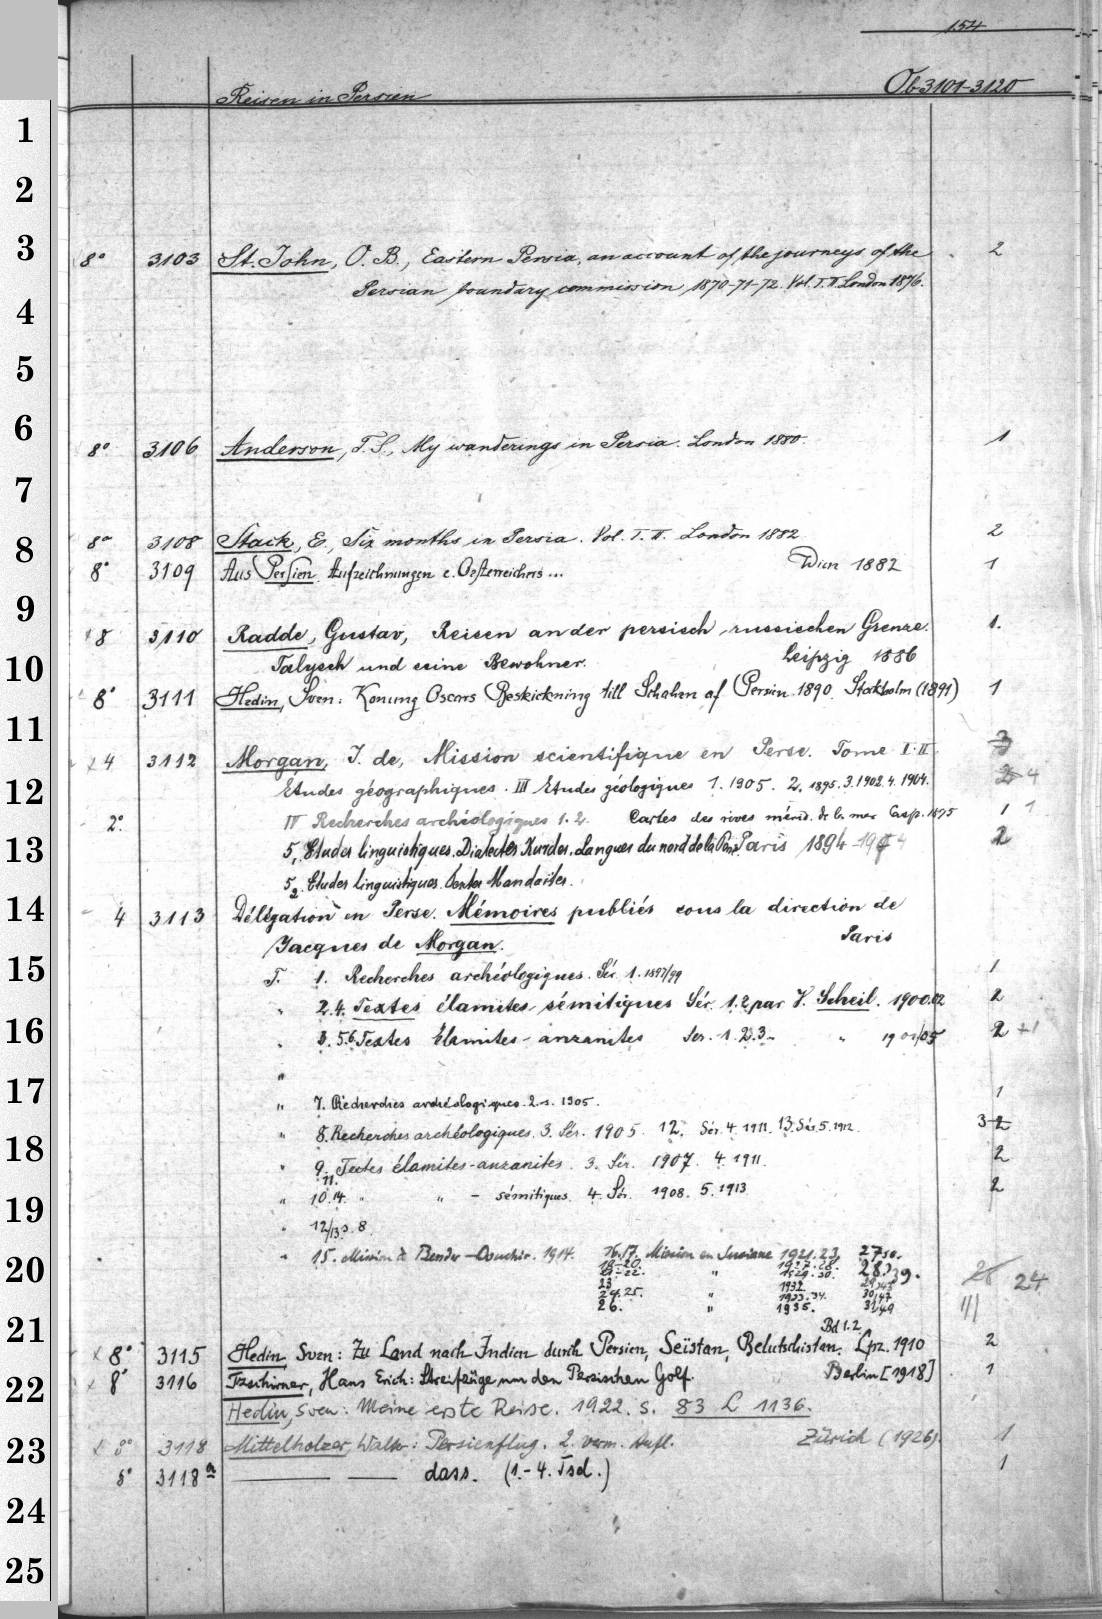 154
Reisen in Persien Ob 3101-3120
1
2
3
8° 3103 St. John, O. B., Eastern Persia, an account of the journeys of the 2
Persian boundary commission 1870-71-72. Vol. I. II. London 1876.
4
5
6
8° 3106 Anderson, T. S., My wanderings in Persia. London 1880. 1
7
8° 3108 Stack, E., Six months in Persia. Vol. I. II. London 1882 2
8
8° 3109 Aus Persien. Aufzeichnungen e. Oesterreichers ... Wien 1882 1
9
8 3110 Radde, Gustav, Reisen an der persisch-russischen Grenze. 1.
10
Talysch und seine Bewohner. Leipzig 1886
8° 3111 Hedin, Sven: Konung Oscars Beskickning till Schahen af Persien 1890. Stockholm (1891) 1
11
4 3112 Morgan, J. de, Mission scientifique en Perse. Tome I. II. 3
12
Etudes géographiques. III Etudes géologiques 1. 1905. 2. 1895. 3. 1902. 4. 1904. 4
2° IV Recherches archéologiques 1. 2. Cartes des rives mérid. de la mer Casp. 1895 1 1
13
5, Etudes linguistiques. Dialectes Kurdes. Langues du nord de la Perse Paris 1894-1904 2
5₂. Etudes linguistiques. Textes Mandaïtes.
14
4 3113 Délégation en Perse. Mémoires publiés sous la direction de
Jacques de Morgan. Paris
15
T. 1. Recherches archéologiques. Sér. 1. 1897/99 1
" 2.4. Textes élamites-sémitiques Sér. 1.2 par V. Scheil. 1900.02 2
16
" 3. 5.6 Textes Elamites-anzanites Ser. 1. 2.3 " 1901/05 2 +1
"
17
" 7. Recherches archéologiques. 2. s. 1905. 1
" 8. Recherches archéologiques. 3. Sér. 1905. 12. Sér. 4. 1911. 13. Sér. 5. 1912. 3 2
18
" 9. Textes élamites-anzanites. 3. Sér. 1907. 4. 1911. 2
11.
19
" 10. 14. " " - sémitiques. 4. Sér. 1908. 5. 1913 2
" 12/13 s. 8.
20
" 15. Mission à Bender-Bouchir. 1914. 16.17. Mission en Susiane 1921.23, 27
18-20. 1927.28. 28.
21-22. " 1929.30. 39.
23 1932.
24.25. " 1933.34. 24
26. " 1935.
21
Bd 1.2
8° 3115 Hedin, Sven: Zu Land nach Indien durch Persien, Seïstan, Belutschistan. Lpz. 1910 2
22
8° 3116 Tzschirner, Hans Erich: Streifzüge um den Persischen Golf. Berlin [1918] 1
Hedin, Sven: Meine erste Reise. 1922. s. 83 L 1136.
23
8° 3118 Mittelholzer, Walter: Persienflug. 2. verm. Aufl. Zürich (1926). 1
8° 3118a dass. (1.-4. Tsd.) 1
24
25